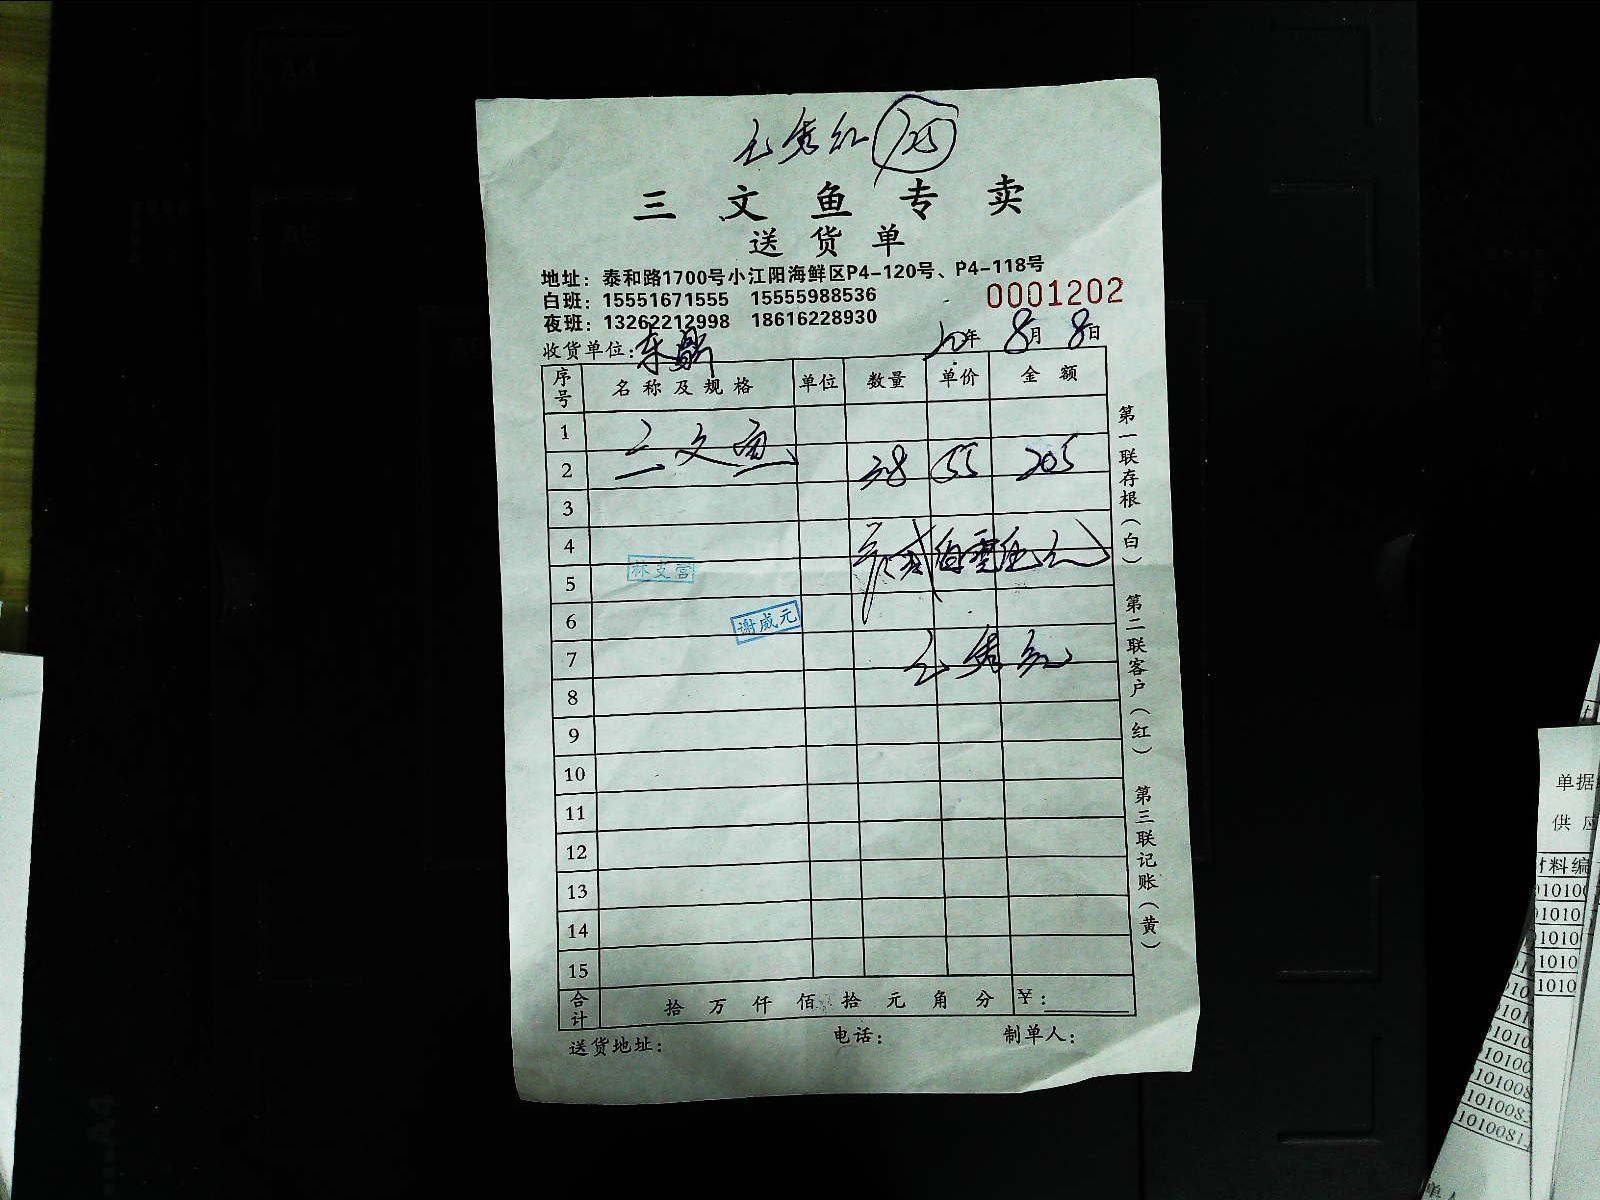 三文鱼专卖
送货单
地址：泰和路1700号小江阳海鲜区P4-120号、P4-118号
白班：15551671555 15555988536
0001202
夜班：13262212998 18616228930
收货单位： 20年 8月 8日
序号 名称及规格 单位 数量 单价 金额
1
2 三文鱼 38 55 205
3
4
5
林支营
6 谢威元
7
8
9
10
11
12
13
14
15
合计 拾万仟佰拾元角分 ¥：
送货地址： 电话： 制单人：
第一联存根（白） 第二联客户（红） 第三联记账（黄）
A4
单据
供应
材料编
01010
01010
01010
1010
1010
1010083
1010081